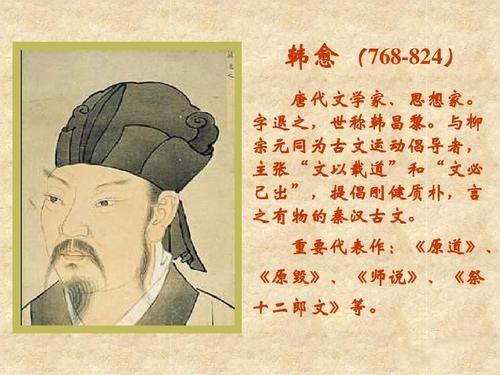 韩愈（768-824）
唐代文学家、思想家。
字退之，世称韩昌黎。与柳
宗元同为古文运动倡导者，
主张“文以载道”和“文必
己出”，提倡刚健质朴，言
之有物的秦汉古文。
重要代表作：《原道》、
《原毁》、《师说》、《祭
十二郎文》等。